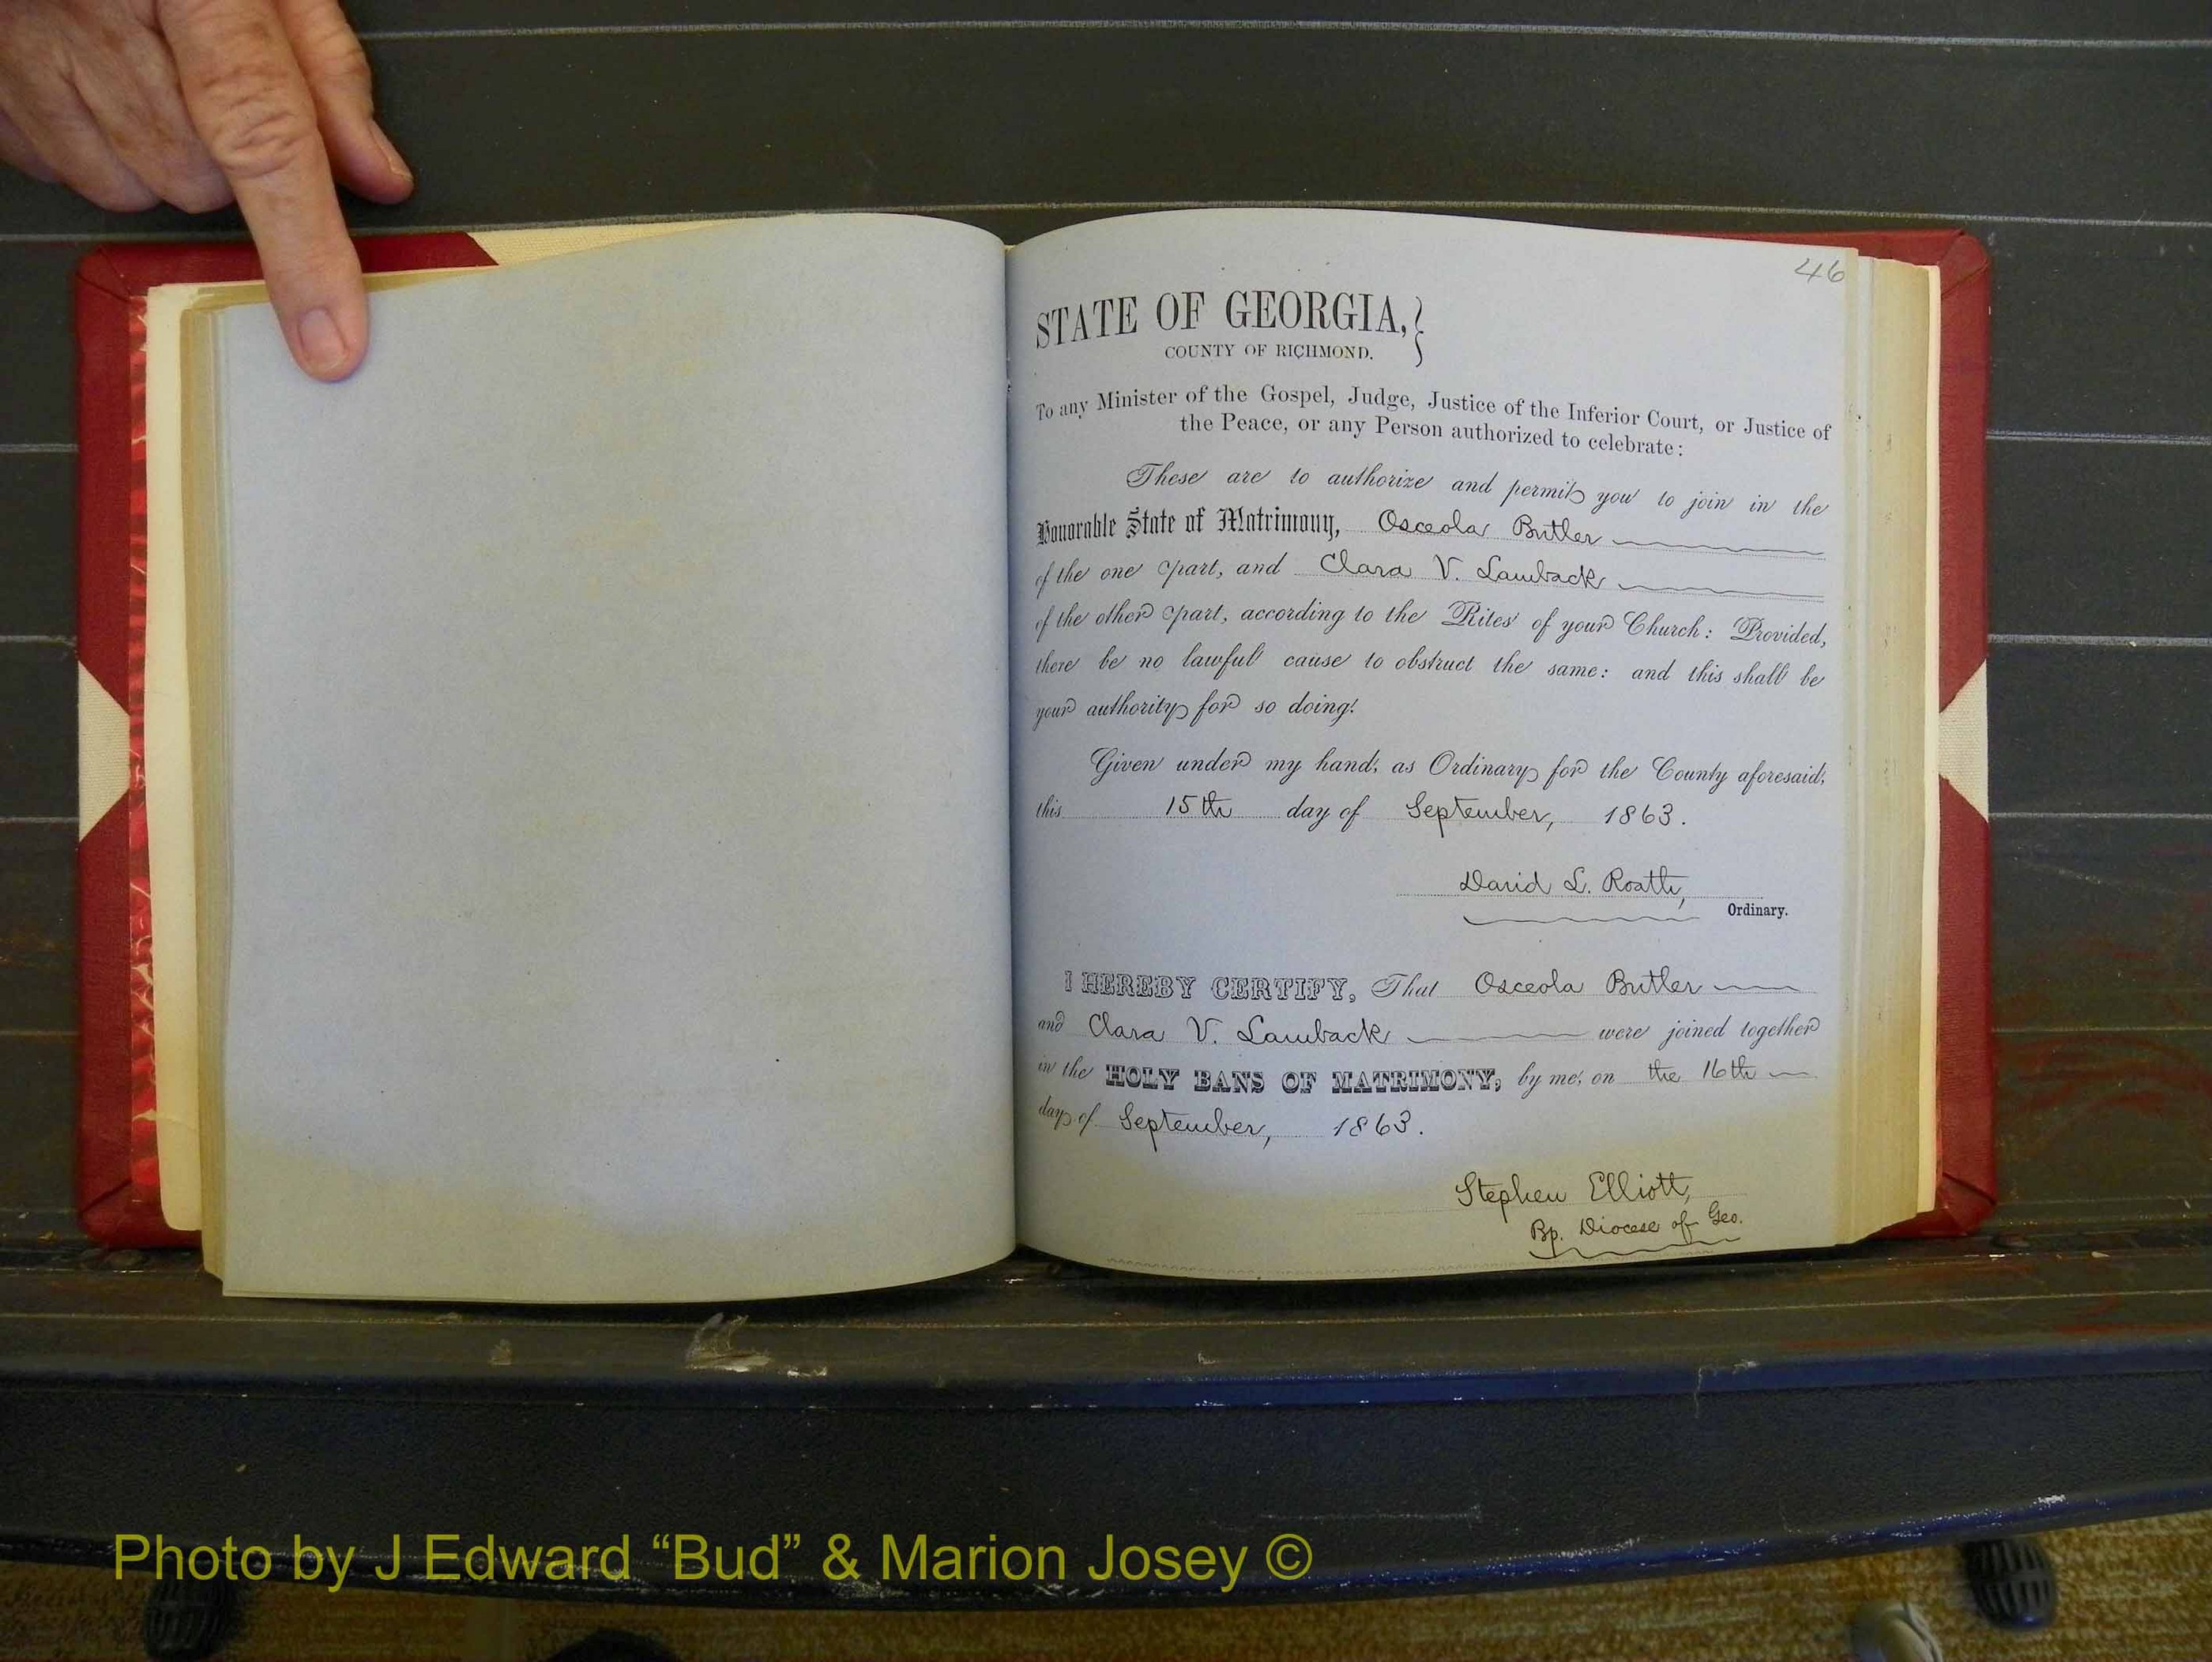 46
STATE OF GEORGIA,
COUNTY OF RICHMOND.
To any Minister of the Gospel, Judge, Justice of the Inferior Court, or Justice of
the Peace, or any Person authorized to celebrate:
These are to authorize and permit you to join in the
Honorable State of Matrimony, Osceola Butler
of the one part, and Clara V. Lamback
of the other part, according to the Rites of your Church: Provided,
there be no lawful cause to obstruct the same: and this shall be
your authority for so doing.
Given under my hand, as Ordinary for the County aforesaid,
this 15th day of September, 1863.
David L. Roath,
Ordinary.
I HEREBY CERTIFY, That Osceola Butler
and Clara V. Lamback were joined together
in the HOLY BANS OF MATRIMONY, by me, on the 16th
day of September, 1863.
Stephen Elliott,
Bp. Diocese of Geo.
Photo by J Edward “Bud” & Marion Josey ©